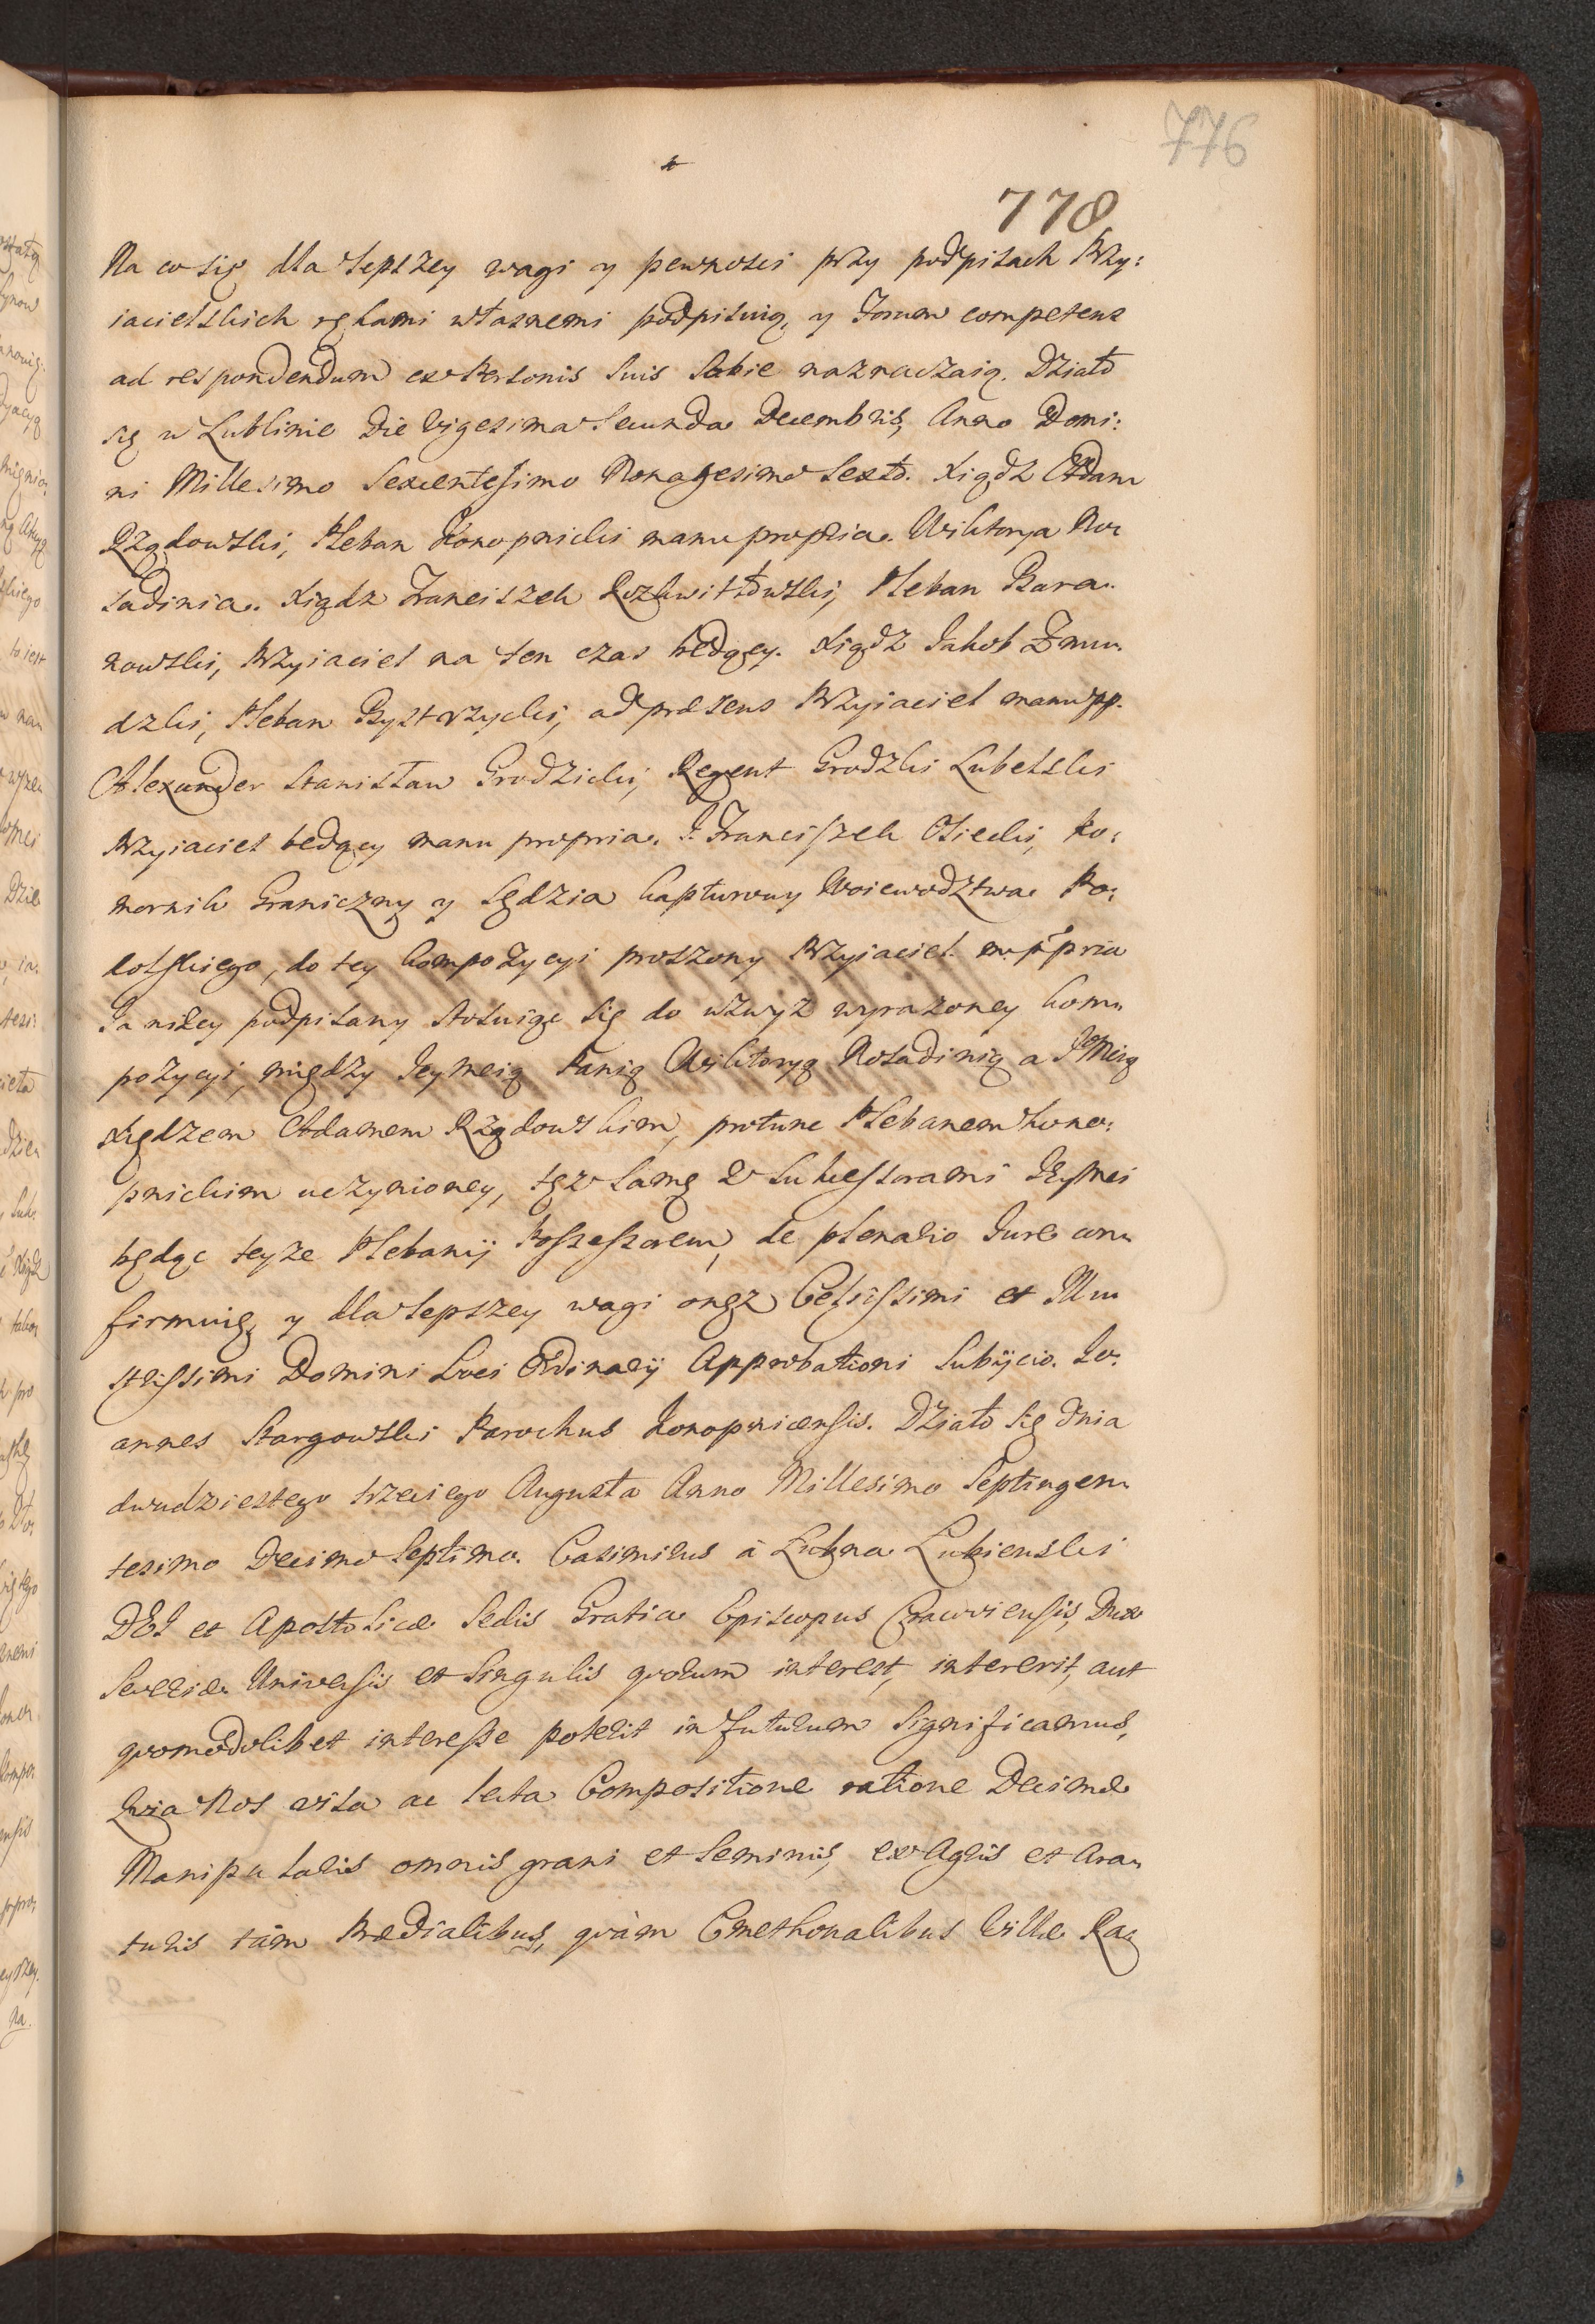 776
778
Na co się dla lepszey wagi y pewnosci przy podpisach Przy:
iacielskich rękami własnemi podpisuią, y Forum competens
ad respondendum ex Personis suis Sobie naznaczaią. Działo
się w Lublinie Die Vigesima Secunda Decembris, Anno Domi:
ni Millesimo Sexcentesimo Nonagesimo Sexto. Xiądz Adam
Rządowski, Pleban Konopnicki manu propria. Wiktorya Ro
sadinia. Xiądz Franciszek Pleban Bara
nowski, Przyiaciel na ten czas będący. Xiądz Jakob Żmu
dzki, Pleban Bystrzycki, ad præsens Przyiaciel manu pp.
Alexander Stanisław Grodzicki, Regent Grodzki Lubelski
Przyiaciel będący manu propria. F. Franciszek Osiecki, Ko:
mornik Graniczny y Sędzia Kapturowy Woiewodztwa Po:
dolskiego, do tey Kompozycyi proszony Przyiaciel. m. ppria
Ja niżey podpisany stosuiąc się do wzwyż wyrażoney Kom
pozycyi, między Jeymcią Panią Wiktoryą Rosadinią a JeMcią
Xiędzem Adamem Rządowskim, protunc Plebanem Kono:
pnickim uczynioney, tęż samę z Sukcessorami Jeymci
będąc teyże Plebanij Possessorem, de plenario Jure con
firmuię, y dla lepszey wagi onęż Celsissimi et Illu
strissimi Domini Loci Ordinarij Approbationi Subijcio. Jo:
annes Skargowski Parochus Konopnicensis. Działo się dnia
dwudziestego trzeciego Augusta Anno Millesimo Septingen
tesimo Decimo Septimo. Casimirus à Łubna Łubienski
DEI et Apostolicæ Sedis Gratia Episcopus Cracoviensis, Dux
Severiæ Universis et Singulis quorum interest, intererit, aut
quomodolibet interesse poterit in futurum Significamus,
Quia Nos visa ac lecta Compositione ratione Decimæ
Manipularis omnis grani et Seminis, ex Agris et Ara
turis tàm Prædialibus, quàm Cmethonalibus Villæ Ra